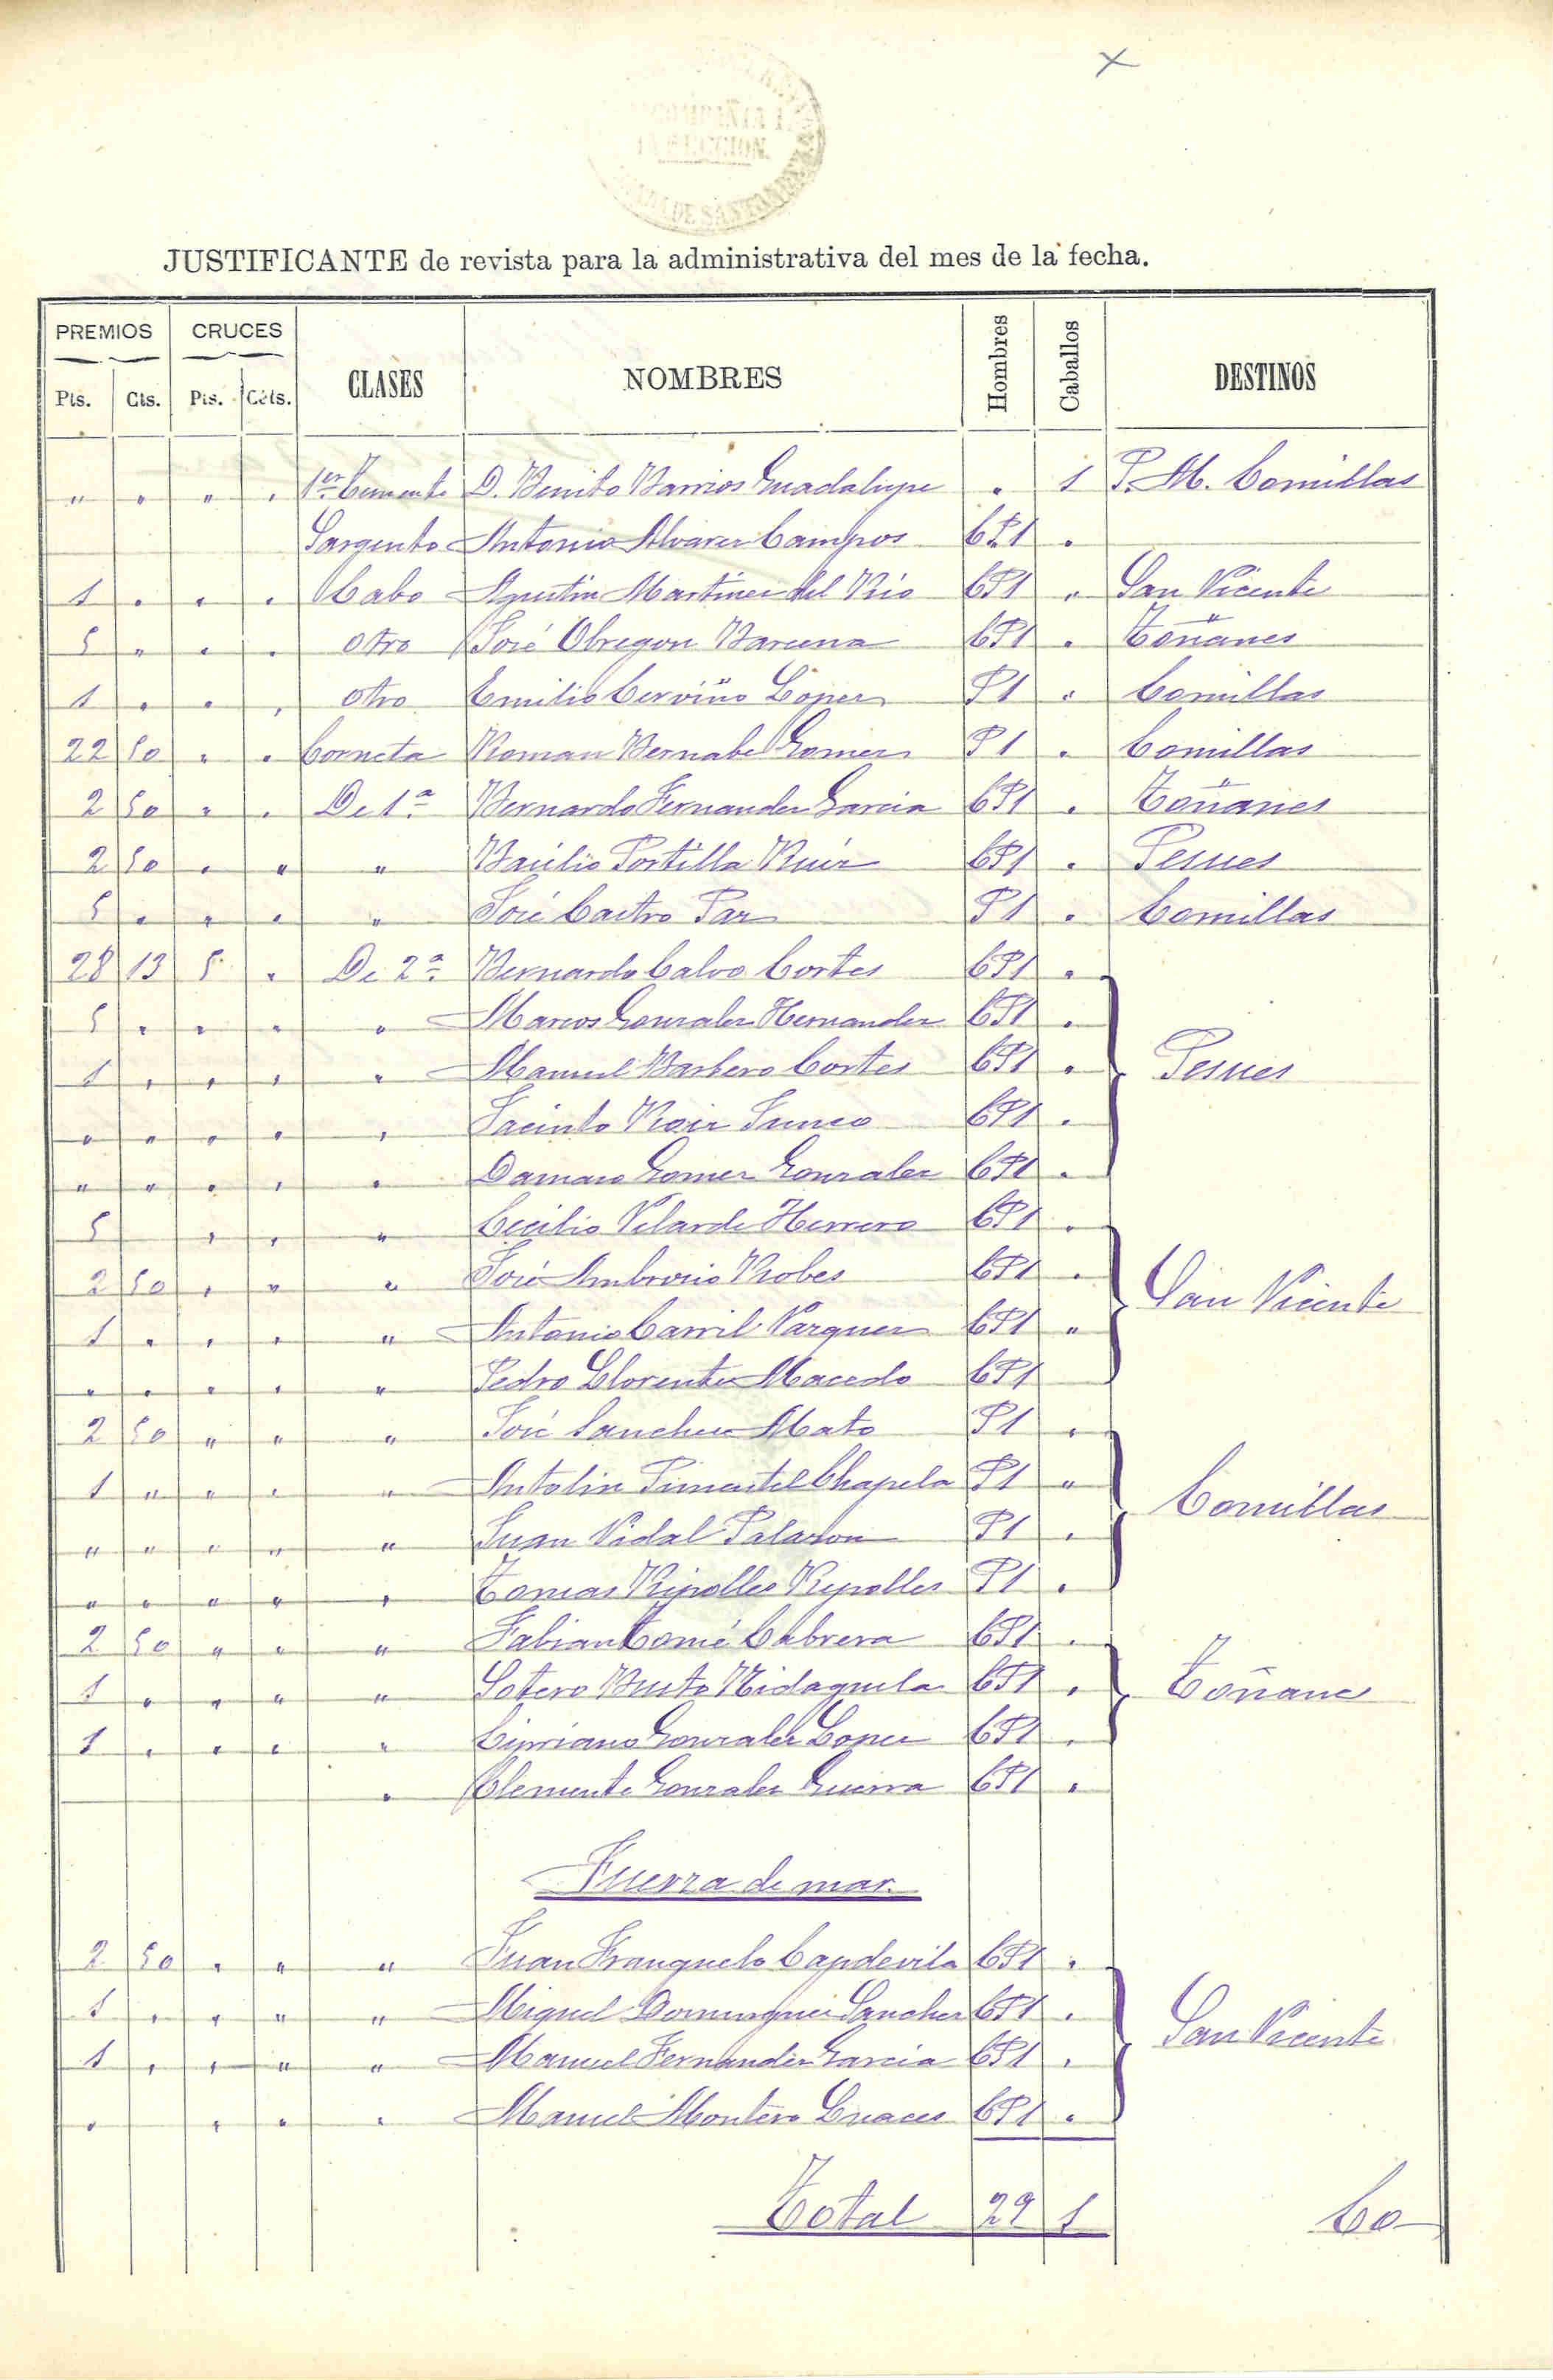 COMPAÑIA
DE SANTANDER
JUSTIFICANTE de revista para la administrativa del mes de la fecha.
PREMIOS CRUCES CLASES NOMBRES Hombres Caballos DESTINOS
Pts. Cts. Pts. Céts.
" " " " 1er Teniente D. Benito Barrios Guadalupe " 1 P. M. Comillas
Sargento Antonio Alvarez Campos 6P1 "
1 " " " Cabo Agustin Martinez del Rio 6P1 " San Vicente
5 " " " otro José Obregon Barcena 6P1 " Toñanes
1 " " " otro Emilio Cerviño Lopez P1 " Comillas
22 50 " " Corneta Roman Bernabe Gomez P1 " Comillas
2 50 " " De 1ª Bernardo Fernandez Garcia 6P1 " Toñanes
2 50 " " " Basilio Portilla Ruiz 6P1 " Pesues
5 " " " " José Castro Paz P1 " Comillas
28 13 5 " De 2ª Bernardo Calvo Cortes 6P1 "
5 " " " " Marcos Gonzalez Hernandez 6P1 "
1 " " " " Manuel Barbero Cortes 6P1 " Pesues
" " " " " Jacinto Roiz 6P1 "
" " " " " Damaso Gomez Gonzalez 6P1 "
5 " " " Cecilio Velarde Herrero 6P1 "
2 50 " " " José Ambrosio Robes 6P1 "
1 " " " " Antonio Carril Vazquez 6P1 " San Vicente
" " " " " Pedro Llorente Macedo 6P1
2 50 " " " José Sanchez Mato P1 "
1 " " " " Antolin Pimentel Chapela P1 "
" " " " " Juan Vidal Palazon P1 " Comillas
" " " " " Tomas Ripolles Ripolles P1 "
2 50 " " " Fabian Tomé Cabrera 6P1 "
1 " " " " Sotero Busto 6P1 " Toñane
1 " " " " Cipriano Gonzalez Lopez 6P1 "
" Clemente Gonzalez Guerra 6P1 "
Fuerza de mar.
2 50 " " " Juan Franquelo Capdevila 6P1 "
1 " " " " Miguel Dominguez Sanchez 6P1 "
1 " " " " Manuel Fernandez Garcia 6P1 " San Vicente
" " " " Manuel Montero Luaces 6P1 "
Total 29 1 Co